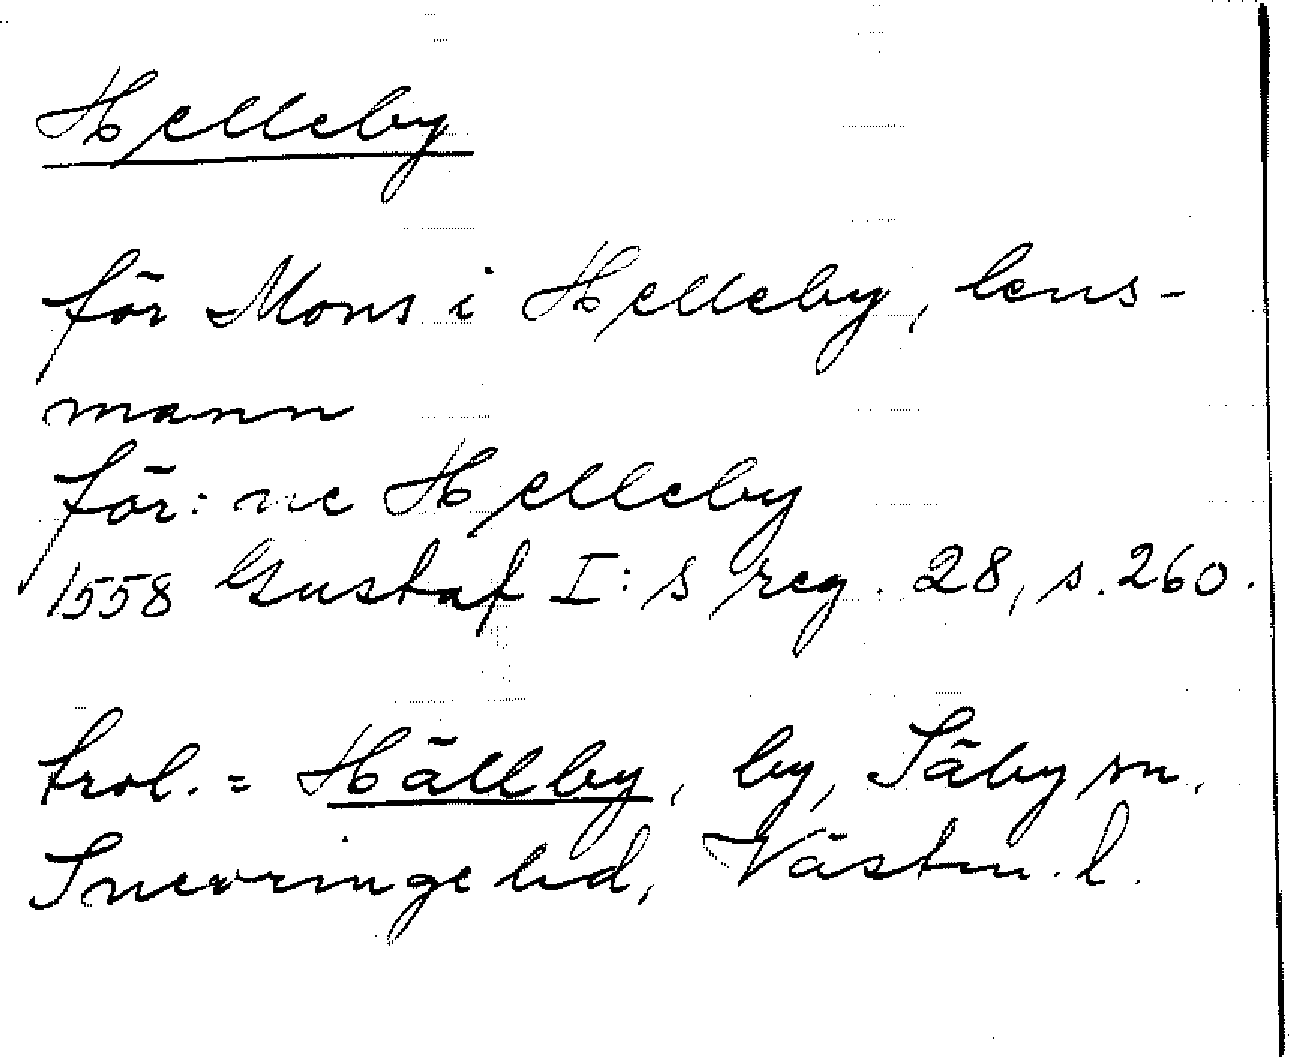 Helleby
för Mons i Helleby, lens-
mann
för: ne Helleby
1558 Gustaf I:s reg. 28, s. 260.
trol. = Hällby, by, Säby sn,
Snevringe hd, Västm. l.